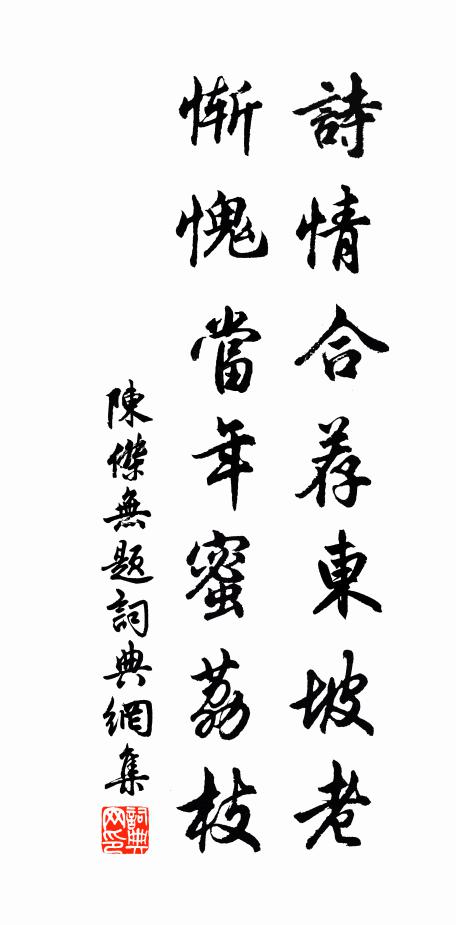 詩情合荐東坡老
慚愧當年蜜荔枝
陳傑無題詞典網集
詞典网印